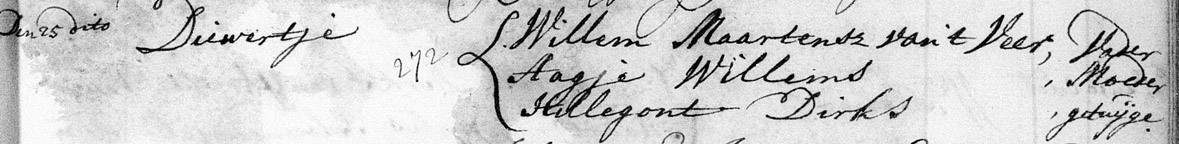 Den 25 dito Diewertje 272 Willem Maartensz van't Veer, Vader
Aagje Willems , Moeder
Hillegont Dirks , getuijge.